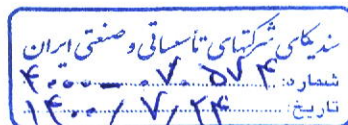 سندیکای شرکتهای تأسیساتی و صنعتی ایران
شماره: ۴۰۰۰-۰۷۰۵۷۴
تاریخ: ۱۴۰۰/۷/۲۴